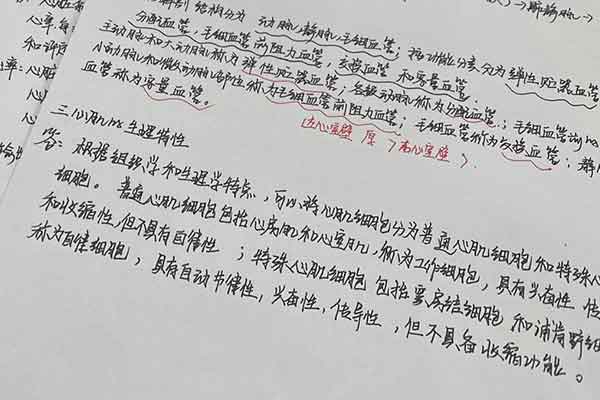 心率
和评
率：心脏
心
输出
解剖结构分为 动脉，静脉，毛细血管；按功能分类分为弹性贮器血管
分配血管，毛细血管前阻力血管，交换血管 和容量血管
主动脉和大动脉称为弹性贮器血管；各级动脉称为分配血管；
小动脉和微动脉 称为毛细血管前阻力血管；毛细血管称为交换血管；静脉
血管称为容量血管。
左心室壁 厚 > 右心室壁
三.心肌的生理特性
答：根据组织学和生理学特点，可以将心肌细胞分为普通心肌细胞和特殊心
细胞。普通心肌细胞包括心房肌和心室肌，称为工作细胞，具有兴奋性 传
和收缩性，但不具有自律性；特殊心肌细胞包括窦房结细胞和浦肯野细
称为自律细胞，具有自动节律性，兴奋性，传导性，但不具备收缩功能。